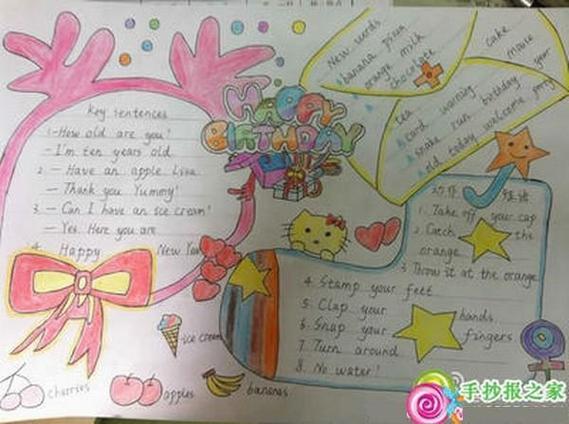 Key sentences
1-How old are you?
-I'm ten years old.
2-Have an apple Lisa.
-Thank you Yummy!
3-Can I have an ice cream?
-Yes. Here you are.
4. Happy New Year
HAPPY
BIRTHDAY
New words
banana pizza
orange milk
chocolate
cake
mouse
tea
card warning your
snake run birthday
old today welcome pony
1. Take off your cap
2. Catch the
orange
3 Throw it at the orange
4. Stamp your feet
5. Clap your hands
6. Snap your fingers
7. Turn around
8. No water!
ice cream
cherries
apples
bananas
手抄报之家